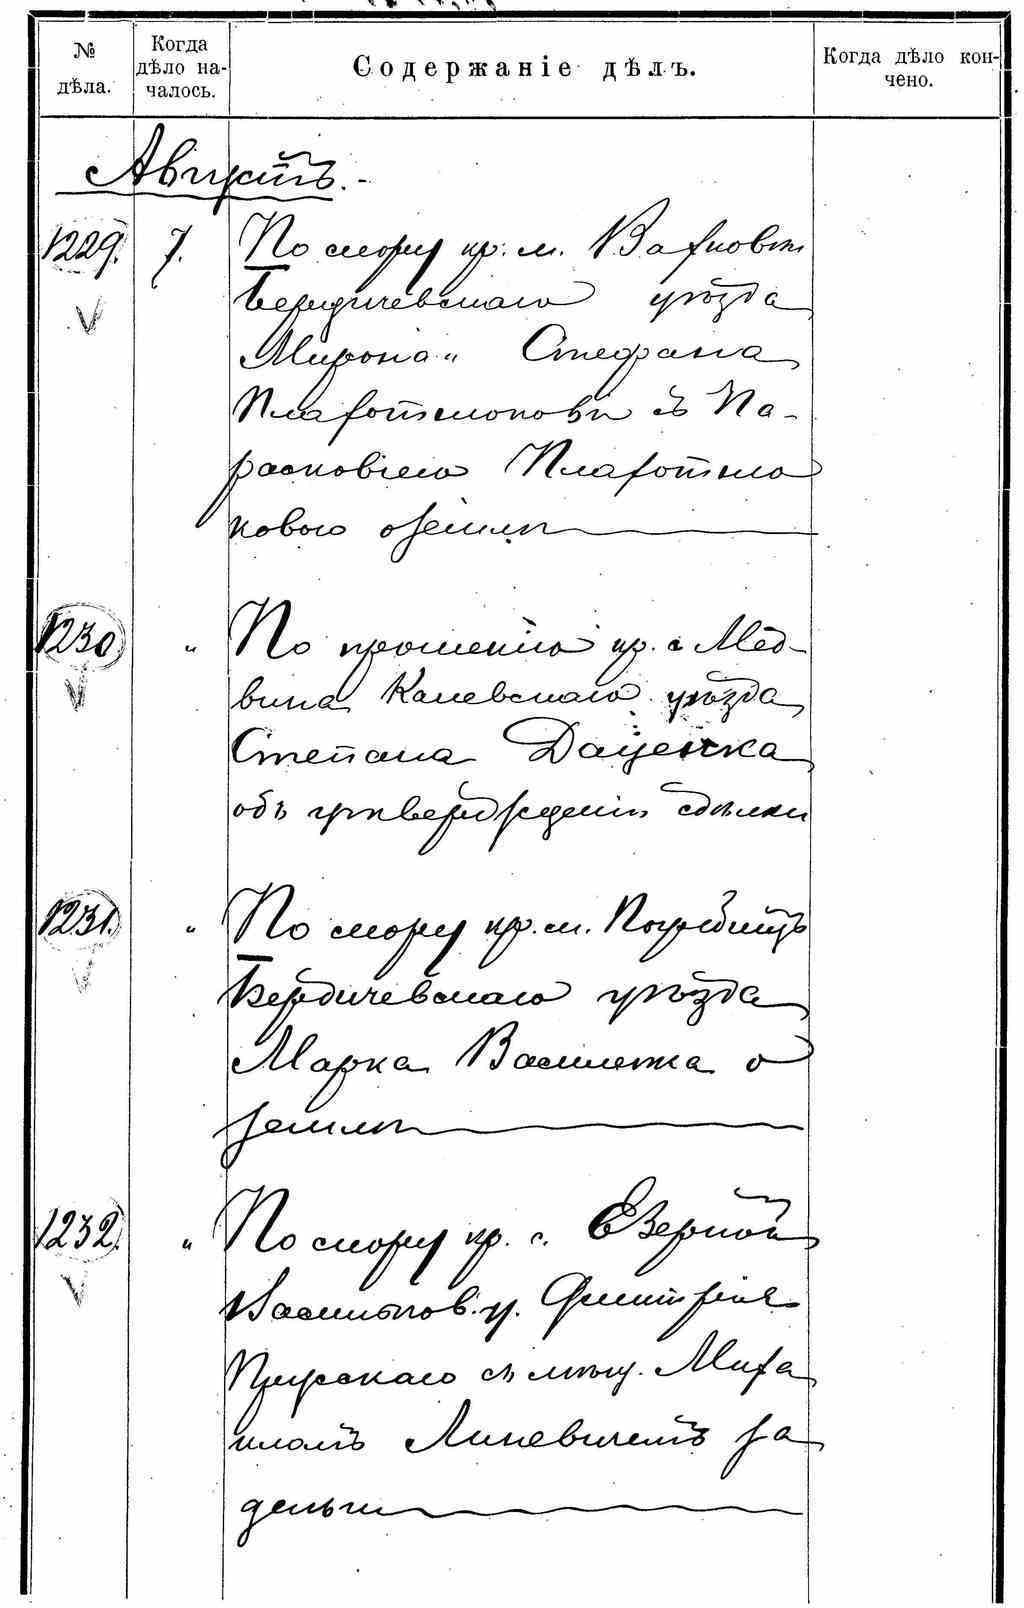 № дѣла.
Когда дѣло на-чалось.
Содержаніе дѣлъ.
Когда дѣло кон-чено.
Августъ.
1229. 7. По спору кр. м. Вахновки
Бердичевскаго уѣзда
Мирона и Стефана
Плахотнюковъ съ Па-
расковіею Плахотню
ковою о землѣ
1230. " По прошенію кр. с. Мед-
вина Каневскаго уѣзда
Степана Даценка
объ утвержденіи сдѣлки
1231. " По спору кр. м. Погребищъ
Бердичевскаго уѣзда
Марка Василенка о
землѣ
1232. " По спору кр. с. Езерной
Васильков. у. Дмитрія
скаго съ мѣщ. Миха
иломъ Линевичемъ за
деньги